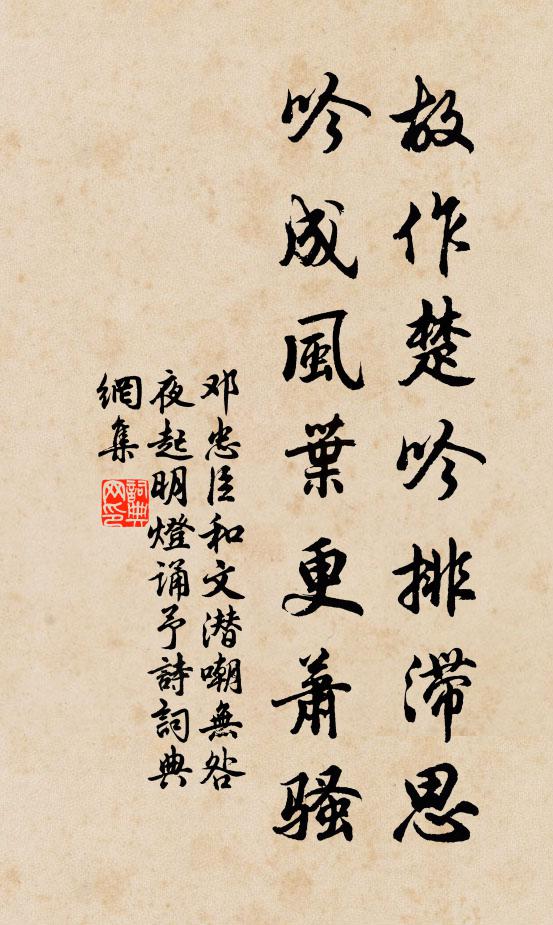 故作楚吟排滞思
吟成風葉更蕭骚
邓忠臣和文潜嘲無咎
夜起明燈诵予詩詞典
網集
詞典
网印